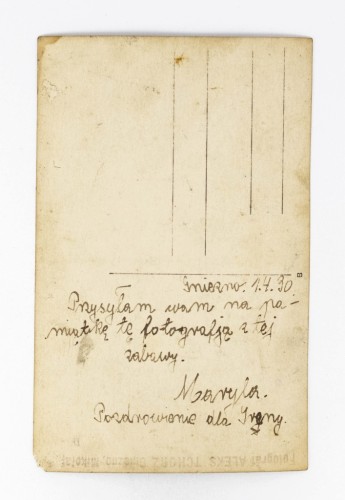 Gniezno. 1.4.30.
Przysyłam wam na pa-
miątkę tę fotografją z tej
zabawy.
Maryla.
Pozdrowienie dla Ireny.
Fotograf ALEKS. TCHÓRZ Gniezno, Mikołaj